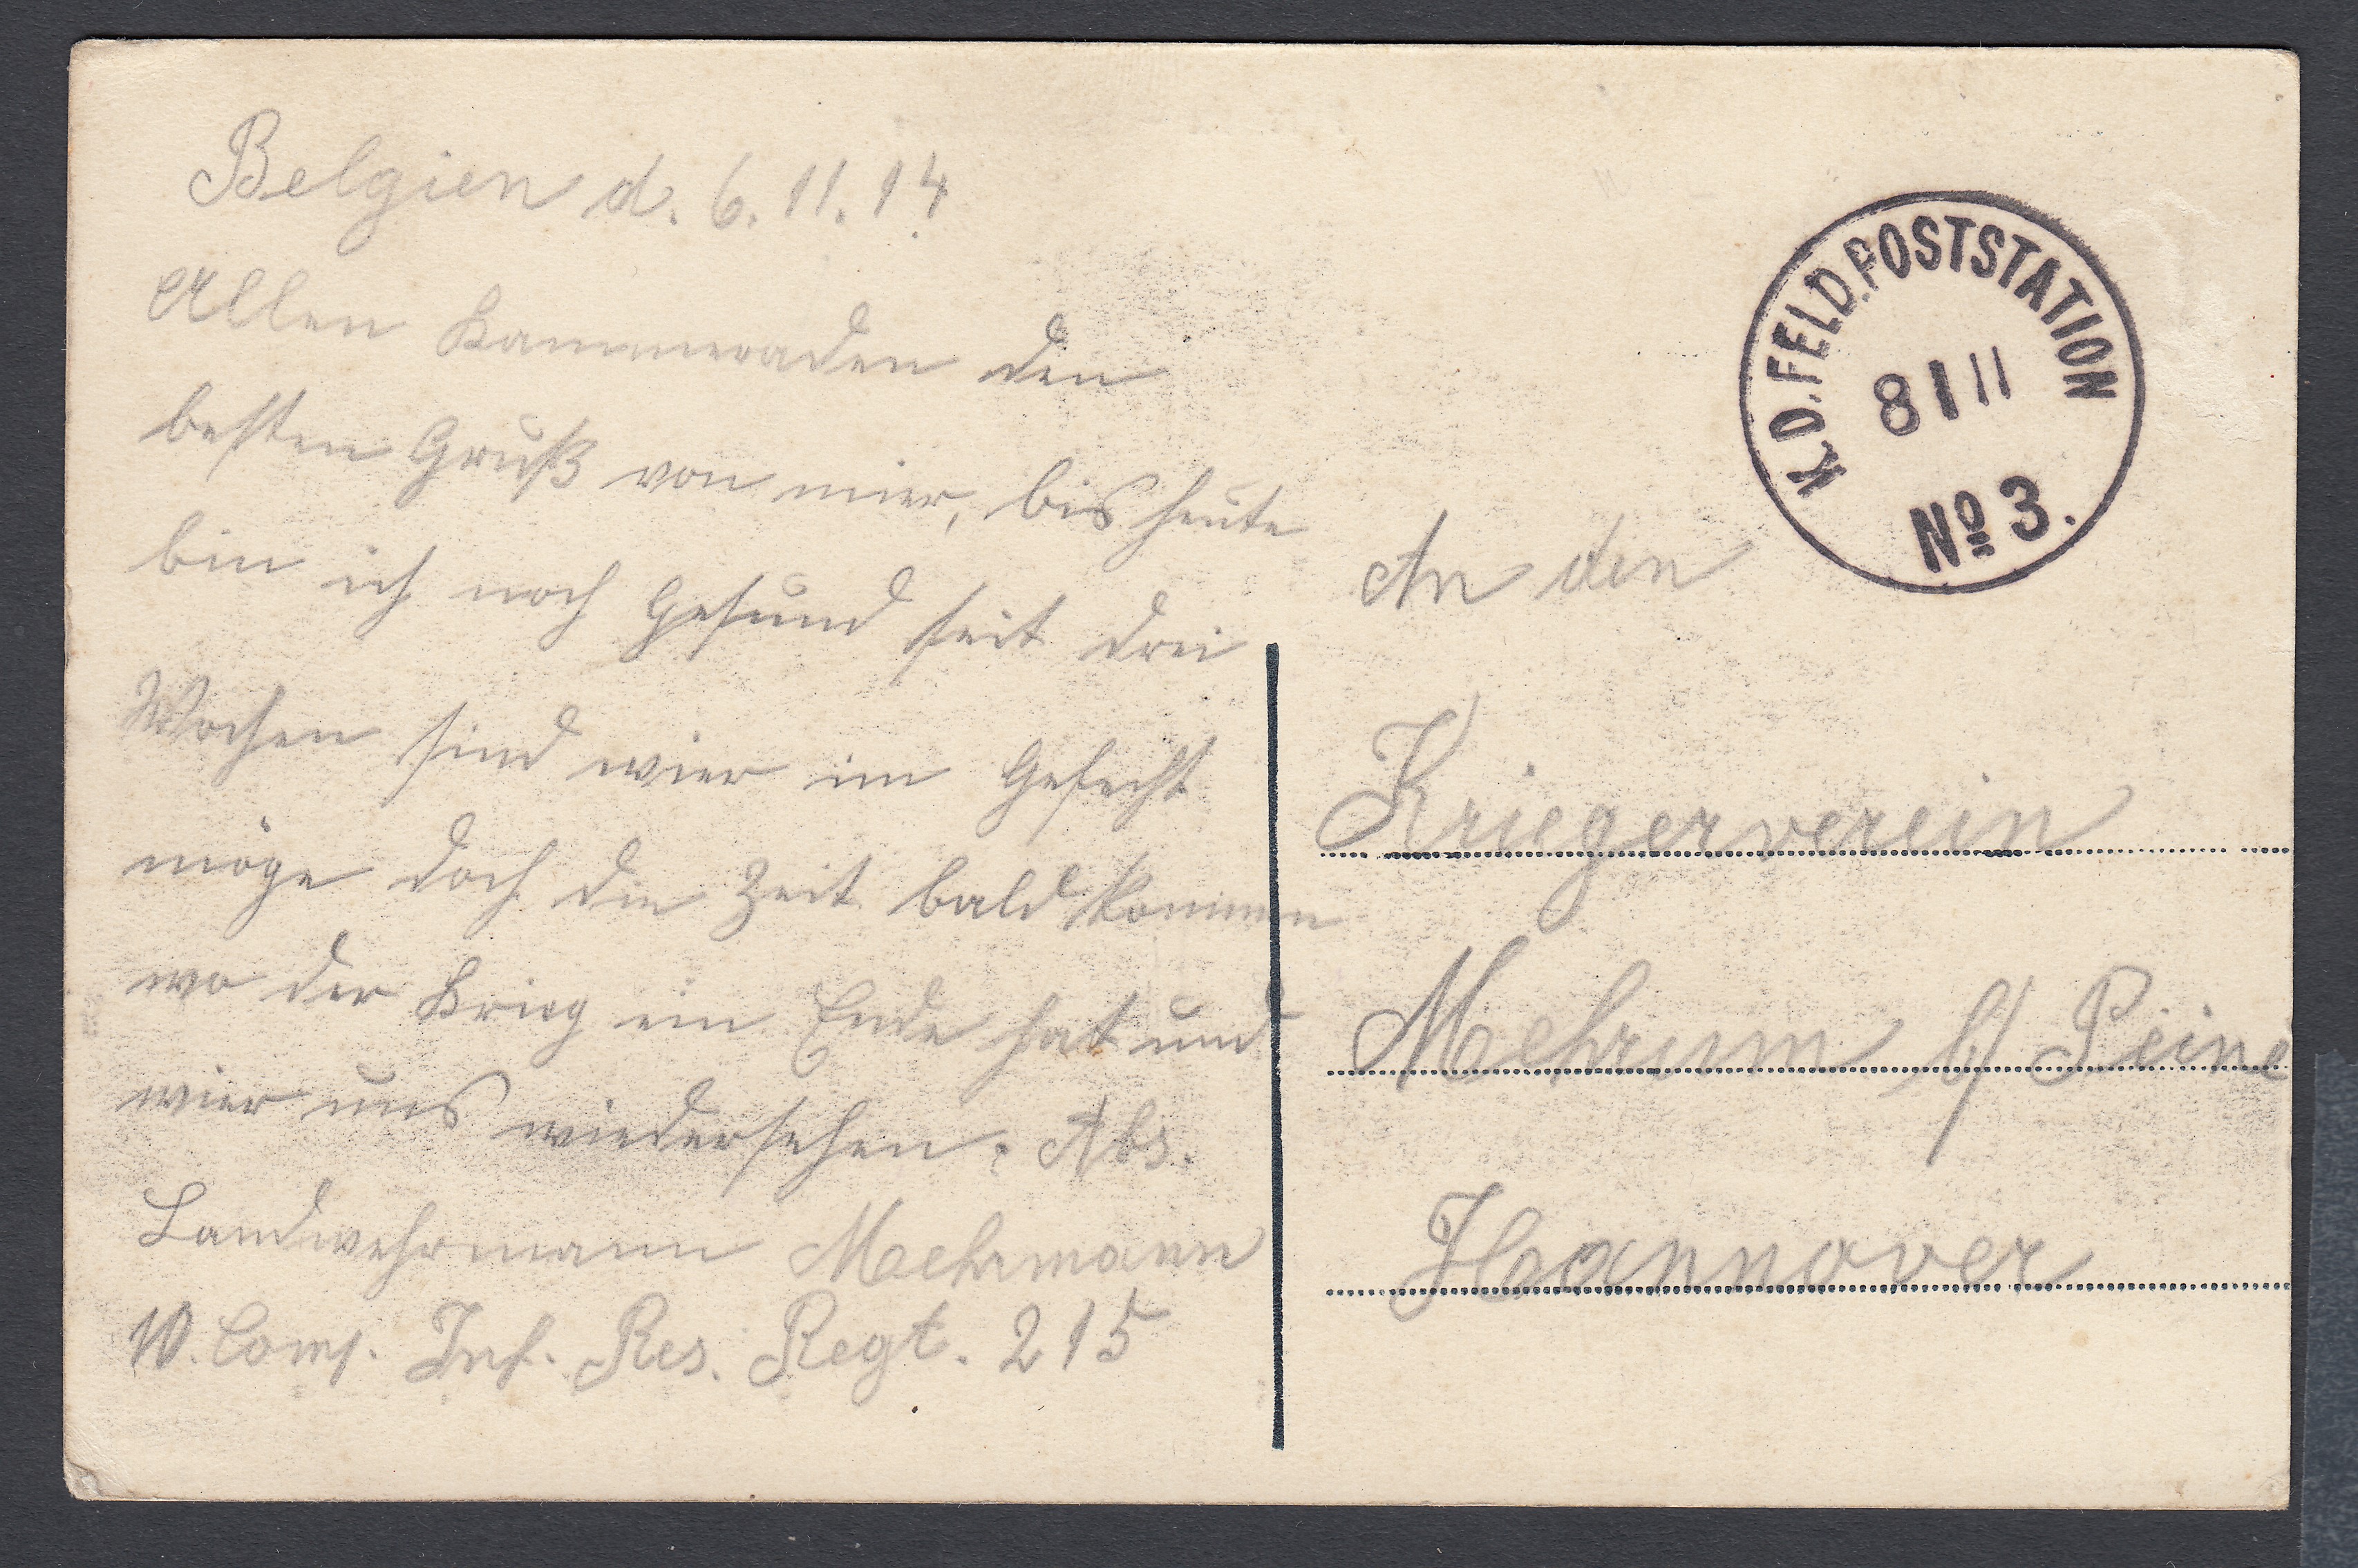 Belgien d. 6.11.14
Allen Kammeraden den
besten Gruß von mier, bis heute
bin ich noch Gesund seit drei
Wochen sind wier im Gefecht
möge doch die Zeit bald kommen
wo der Krieg ein Ende hat und
wier uns wiedersehen. Abs.
Landwehrmann Mehrmann
10. Comp. Inf. Res. Regt. 215
K.D. FELD.POSTSTATION
8 11
No 3.
An den
Kriegerverein
Mehrum b/ Peine
Hannover